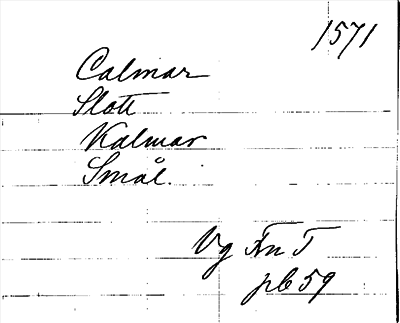 1571
Calmar
Slott
Kalmar
Smål.
Vg Fm T
pb 59